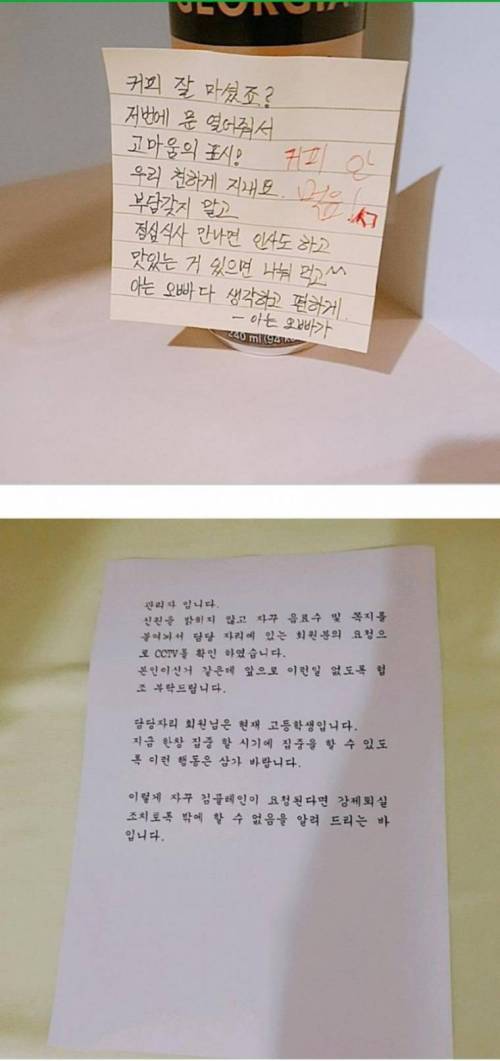 GEORGIA
커피 잘 마셨죠?
저번에 문 열어줘서
고마움의 표시!
우리 친하게 지내요.
부담갖지 말고
점심식사 만나면 인사도 하고
맛있는 거 있으면 나눠 먹고^^
아는 오빠다 생각하고 편하게.
- 아는 오빠가
커피 안
먹음!
240 ml (94 k
관리자 입니다.
신원을 밝히지 않고 자꾸 음료수 및 쪽지를
붙여놔서 담당 자리에 있는 회원분의 요청으
로 CCTV를 확인 하였습니다.
본인이신거 같은데 앞으로 이런일 없도록 협
조 부탁드립니다.
담당자리 회원님은 현재 고등학생입니다.
지금 한창 집중 할 시기에 집중을 할 수 있도
록 이런 행동은 삼가 바랍니다.
이렇게 자꾸 컴플레인이 요청된다면 강제퇴실
조치로톡 밖에 할 수 없음을 알려 드리는 바
입니다.